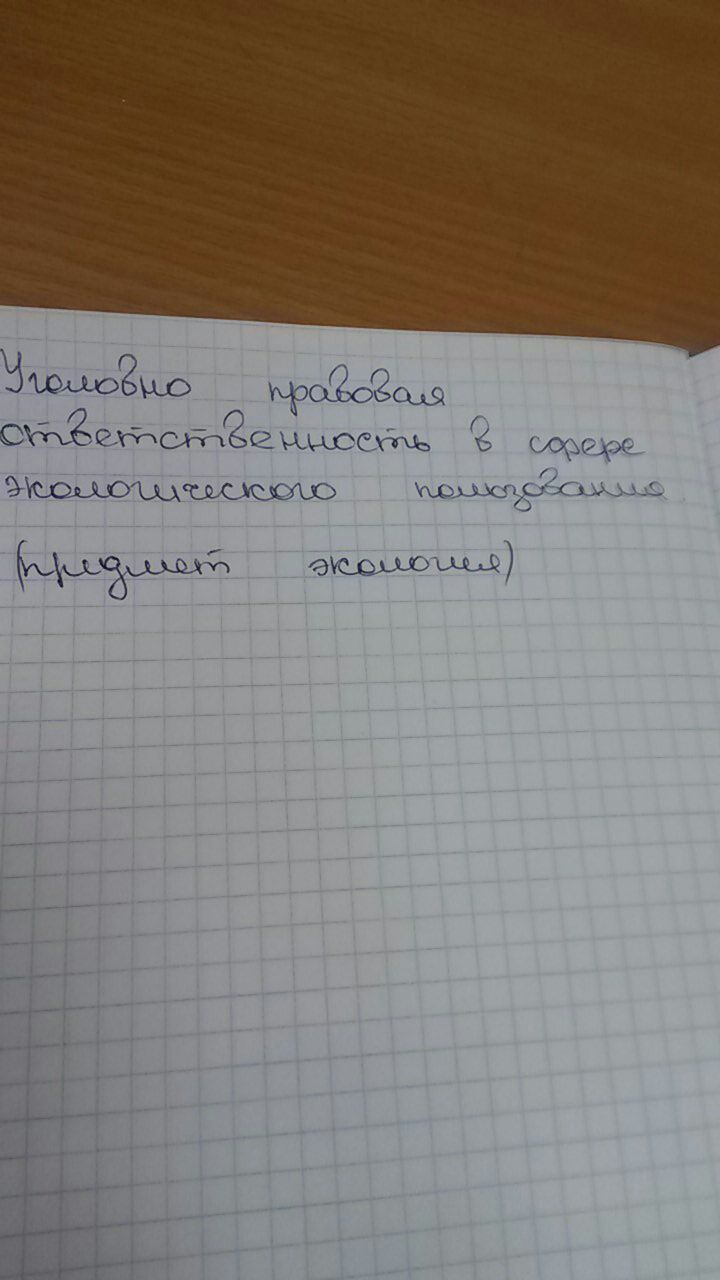 Уголовно правовая
ответственность в сфере
экологического пользования
(предмет экология)